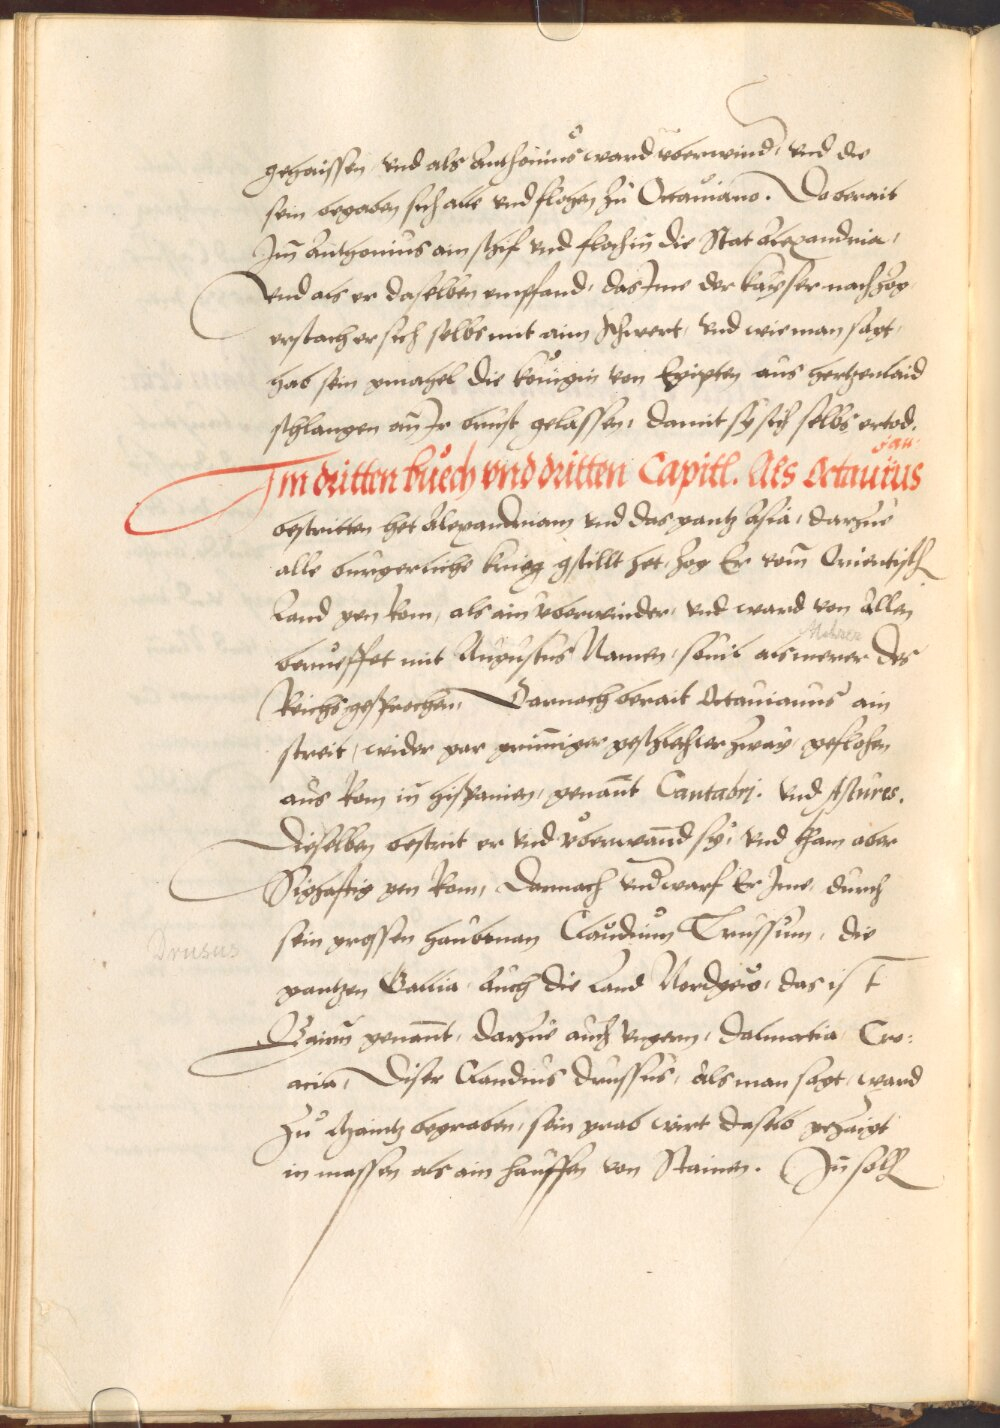 gehaissen, vnd als Anthonius ward vberwind, vnd die
sein begaben sich alle vnd flohen zu Octauiano. Do berait
Im Anthonius ain schif vnd floch in die Stat Alexandria,
vnd als er daselben empfand, das Ime der kayser nachzog
erstach er sich selbs mit aim schwert, vnd wie man sagt,
hab sein gmahel die konigin von Egipten aus hertzenlaid
schlangen an Jr brust gelassen, damit sy sich selbs ertod.
Im dritten buech vnd dritten Capitl. Als Octauius
ian
bestritten het Alexandriam vnd das gantz Asia, darzue
alle burgerliche krieg gstillt het, zog Er vom Orientisch
Land gen Rom, als ain vberwinder, vnd ward von Allen
Mehrer
beruefft mit Augustus Namen, souil als merer des
Reichs gesprochen, Darnach berait Octauianus ain
streit, wider gar grimiger geschlechter zway, geflohen
aus Rom in hispanien, genant Cantabrj. vnd Astures.
Dieselben bestrit er vnd vberwand sy, vnd kham aber
Sighaftig gen Rom, Darnach vndwarf Er Ime, durch
sein grossen haubtman Claudium Trussum, die
Drusus
gantzen Gallia, Auch die Land Nordgew, das ist
Bairn genant, darzue auch vngern, Dalmatia, Cro:
acia, Diser Claudius Drussus, Als man sagt, ward
zu Maintz begraben, sein grab wirt daselb gezaigt
in massen als ain hauffen von Stainen. In solh